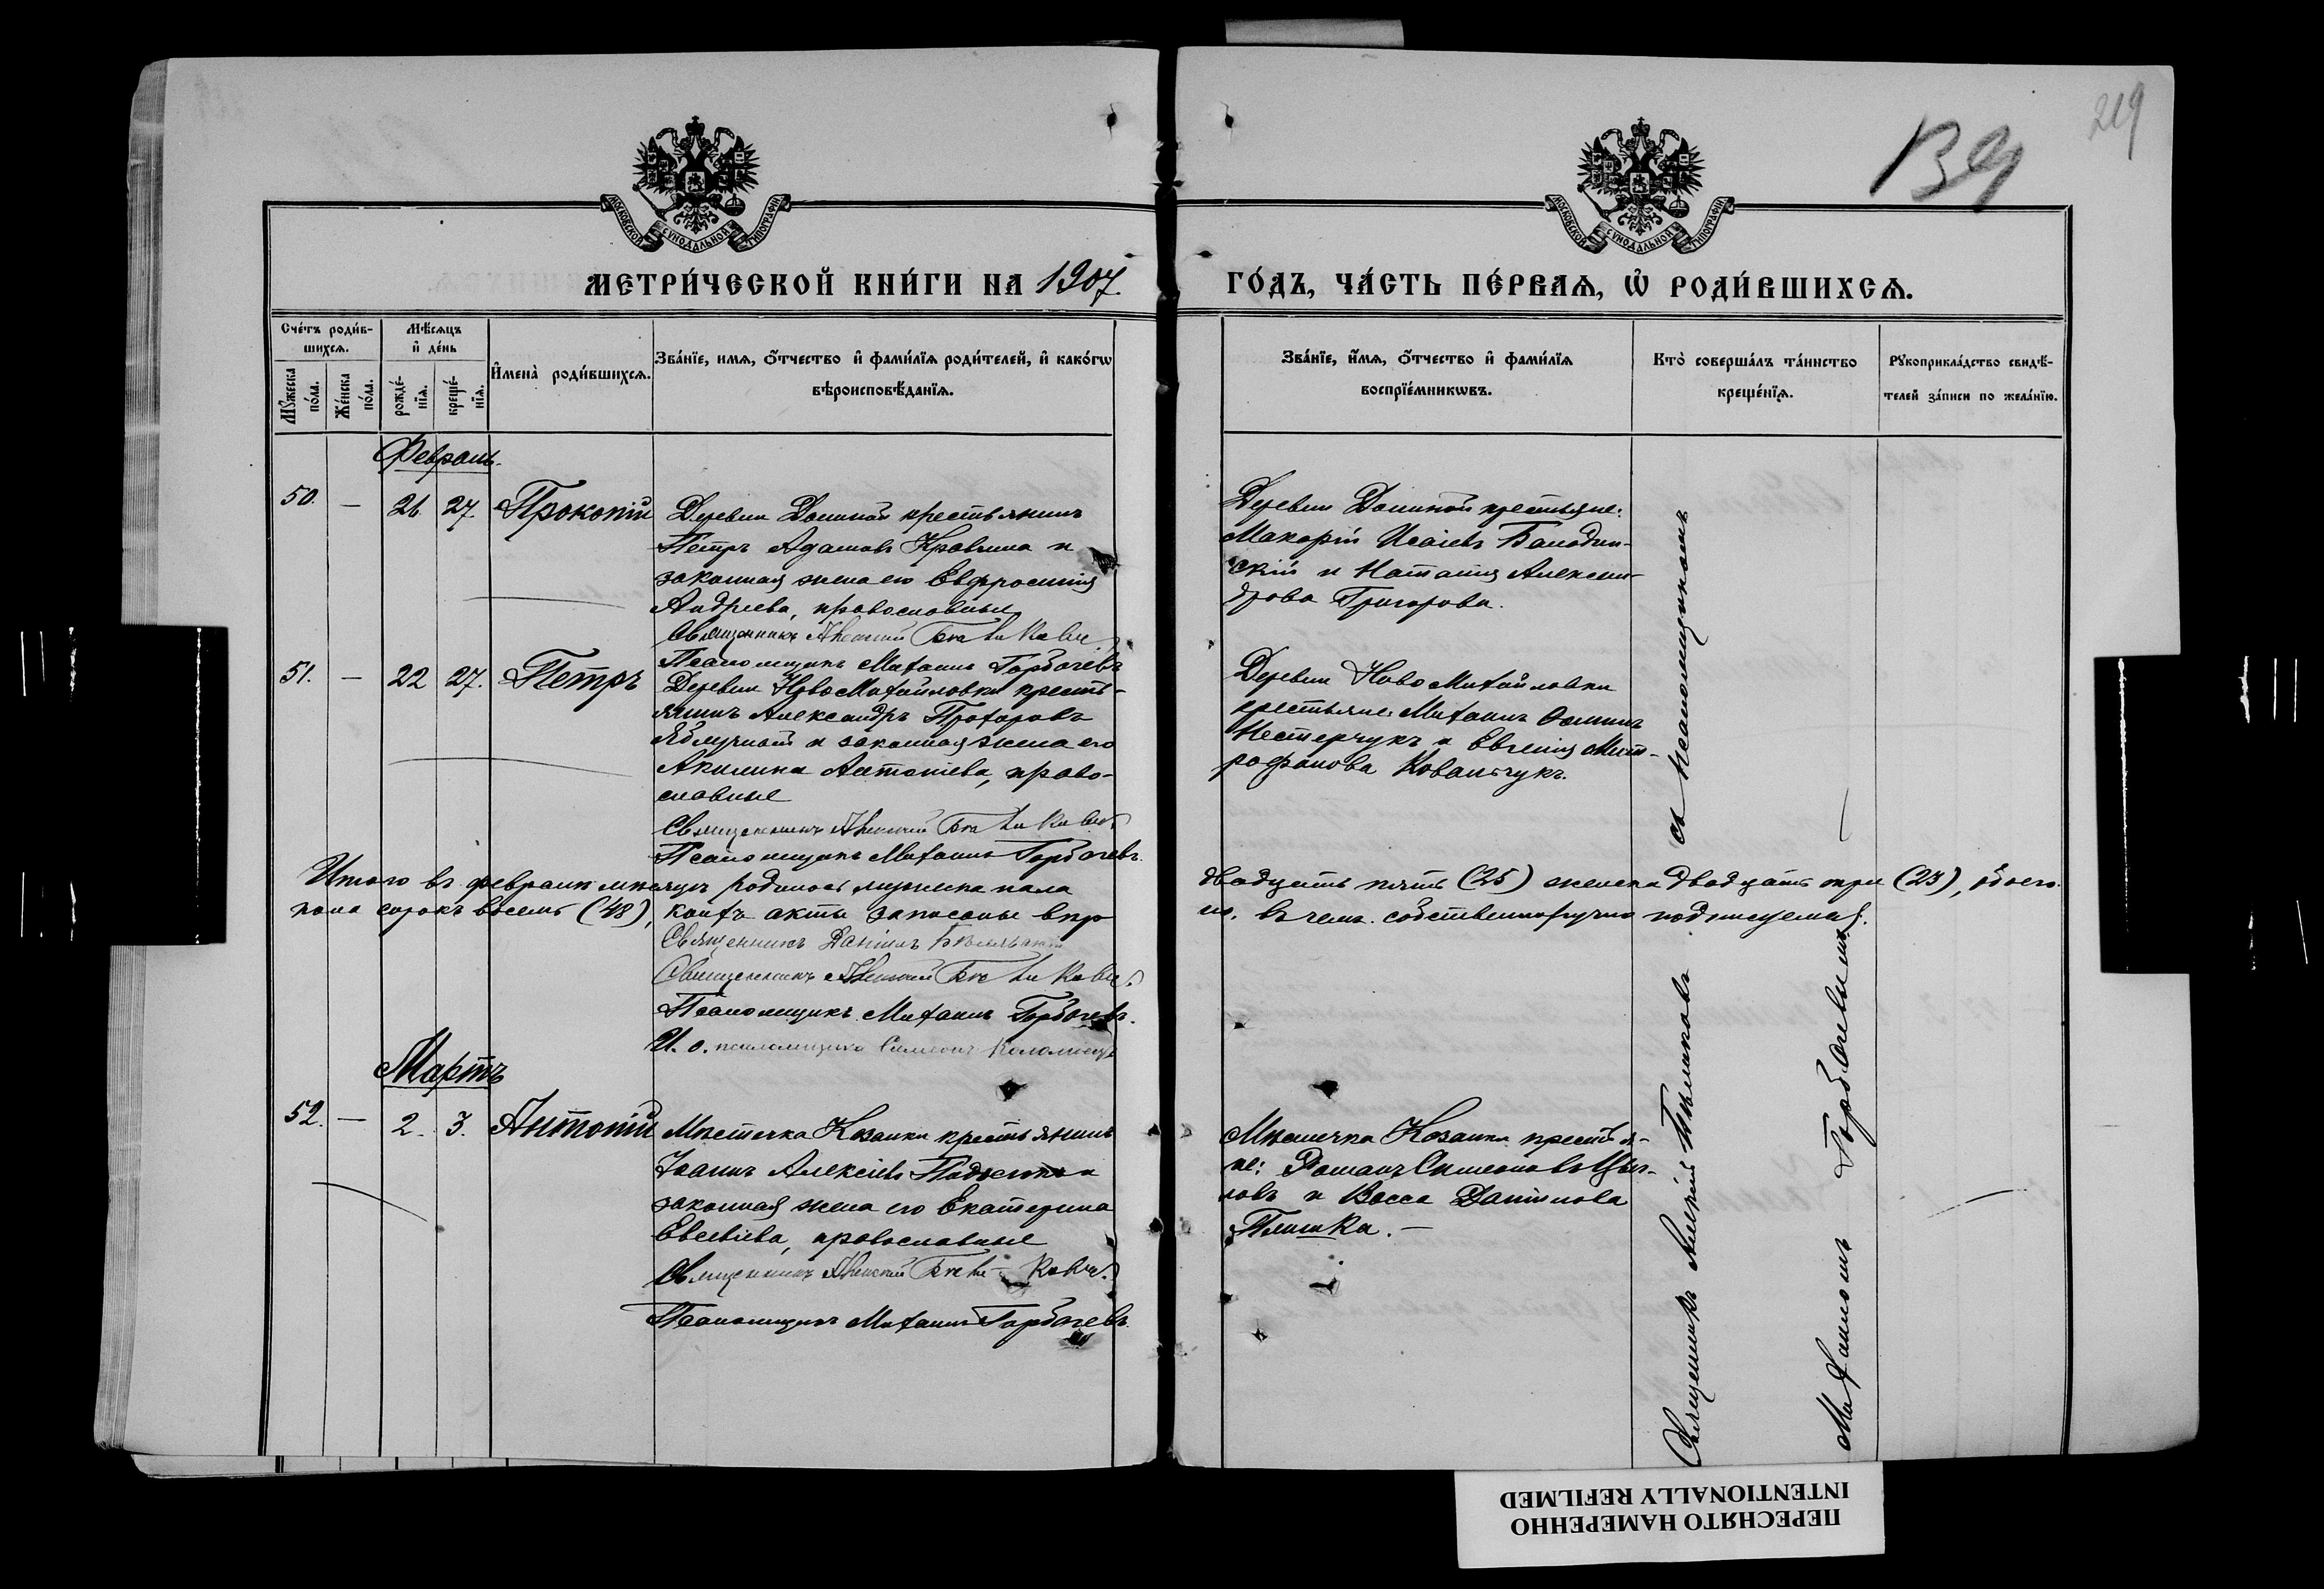 219
139
МОСКОВСКОЙ СѴНОДАЛЬНОЙ ТИПОГРАФІИ
МОСКОВСКОЙ СѴНОДАЛЬНОЙ ТИПОГРАФІИ
МЕТРИ́ЧЕСКОЙ КНИ́ГИ НА 1907.
ГО́ДЪ, ЧА́СТЬ ПЕ́РВАѦ, Ѡ҆ РОДИ́ВШИХСѦ.
Сче́тъ роди́в-
шихсѧ.
Мꙋ́жеска по́ла.
Же́нска по́ла.
Мѣ́сѧцъ
и҆ де́нь
рожде́-
нїѧ.
креще́-
нїѧ.
И҆мена̀ роди́вшихсѧ.
Зва́нїе, имѧ, ѻ҆́тчество и҆ фами́лїѧ роди́телей, и҆ како́гѡ
вѣроисповѣ́данїѧ.
Зва́нїе, и҆́мѧ, ѻ҆́тчество и҆ фами́лїѧ
воспрїе́мникѡвъ.
Кто̀ соверша́лъ та́инство
креще́нїѧ.
Рꙋкоприкла́дство свидѣ́-
телей за́писи по жела́нїю.
Февраль.
50. — 26. 27. Прокопій
Деревни Долиной крестьянинъ
Петръ Адамовъ Кравчина и
законная жена его Евфросинія
Андреева, православные
Священникъ Алексій
Псаломщикъ Михаилъ Горбачевъ
Деревни Долиной крестьяне:
Макарій Исаіевъ
скій и Наталія Алексан-
дрова Григорова.
51. — 22 27. Петръ
Деревни НовоМихайловки кресть-
янинъ Александръ Прохоровъ
и законная жена его
Акилина Антоніева, право-
славные
Священникъ Алексій
Псаломщикъ Михаилъ Горбачевъ.
Деревни НовоМихайловки
крестьяне Михаилъ
Нестерчукъ и Евгенія Мит-
рофанова Ковальчукъ.
Итого въ феврале месяце родилось мужеска пола
двадцать пять (25) женска двадцать три (23), обоего
пола сорокъ восемь (48), коихъ акты записаны впр
но, въ чемъ собственноручно подписуемся.
Священникъ Даніилъ
Священникъ Алексій
Псаломщикъ Михаилъ Горбачевъ.
И. о. псаломщика Симеонъ Коломіецъ
Мартъ
52. — 2. 3. Антоній
Местечка Козанки крестьянинъ
Іоаннъ Алексіевъ и
законная жена его Екатерина
Евсевіева, православные
Священникъ Алексій
Псаломщикъ Михаилъ Горбачевъ.
Местечка Козанки крестья-
не: Романъ Симеоновъ
ловъ и Васса Даніилова
Плишка. —
Священникъ Алексій съ псаломщикомъ
Михаиломъ Горбачевымъ —
ПЕРЕСНЯТО НАМЕРЕННО
INTENTIONALLY REFILMED